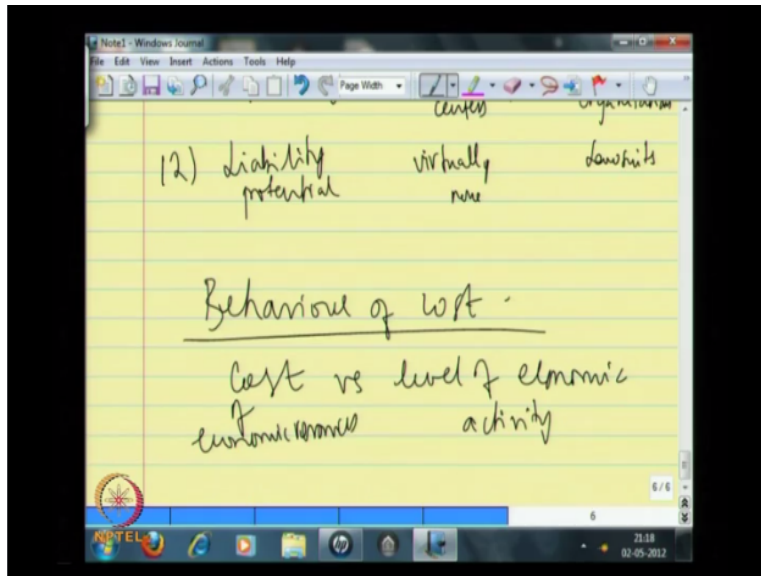 Note1 - Windows Journal
File Edit View Insert Actions Tools Help
Page Width
centers organization
12) Liability virtually Lawsuits
potential none
Behaviour of cost.
Cost vs level of economic
of activity
economic resources
6/6
6
NPTEL
hp
21:18
02-05-2012